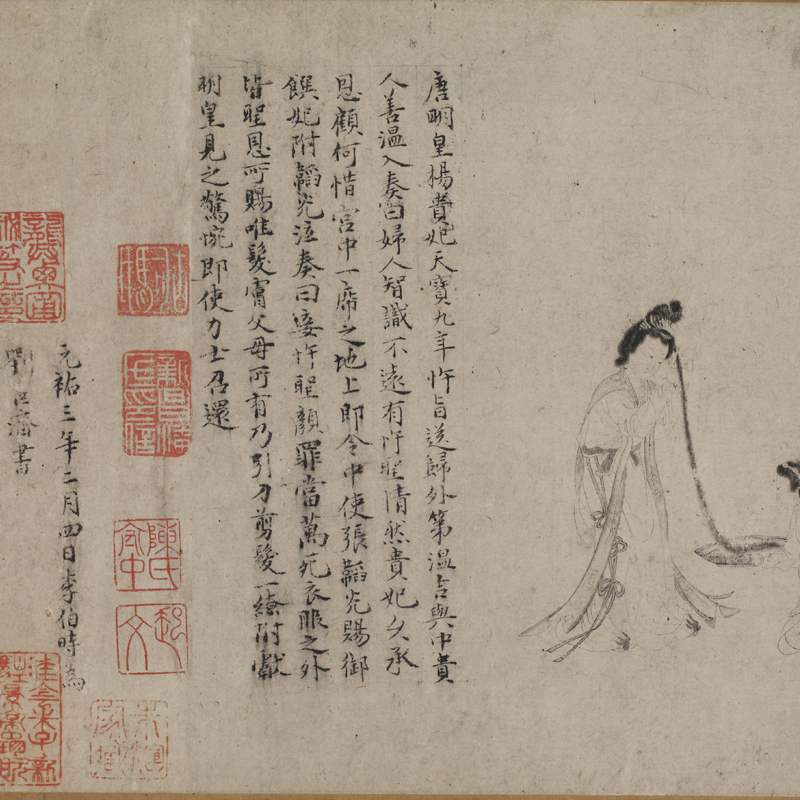 唐明皇楊貴妃天寶九年忤旨送歸外第溫吉與中貴
人善溫入奏曰婦人智識不遠有忤聖情然貴妃久承
恩顧何惜宮中一席之地上即令中使張韜光賜御
饌妃附韜光泣奏曰妾忤聖顏罪當萬死衣服之外
皆聖恩所賜唯髮膚父母所有乃引刀剪髮一繚附獻
明皇見之驚惋即使力士召還
元祐三年二月四日李伯時為
劉巨濟書
陳氏